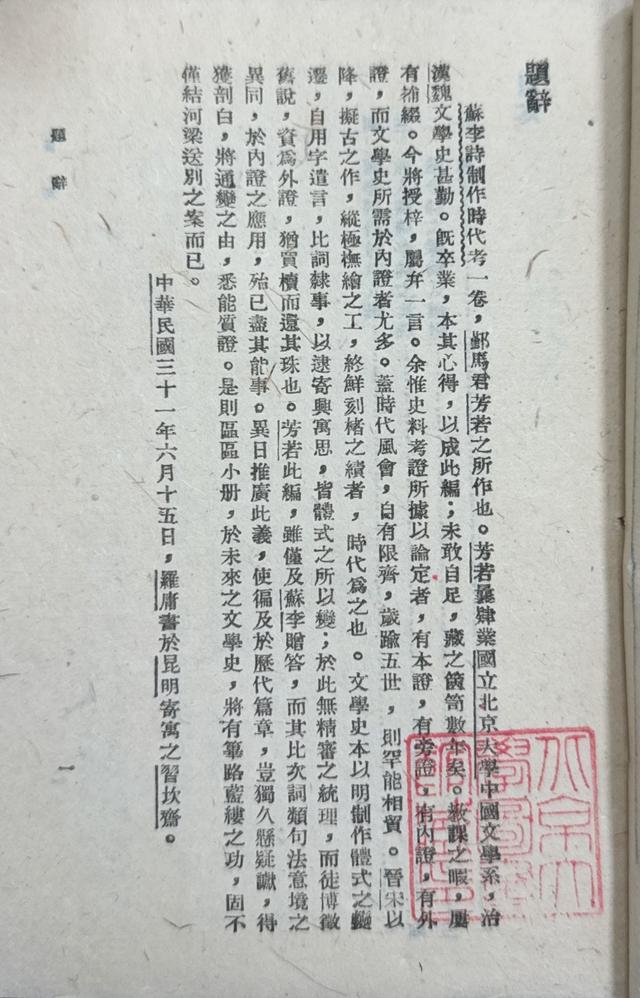 題辭
蘇李詩制作時代考一卷，鄞馬君芳若之所作也。芳若曩肄業國立北京大學中國文學系，治
漢魏文學史甚勤。既卒業，本其心得，以成此編；未敢自足，藏之篋笥數年矣。教課之暇，屢
有補綴。今將授梓，屬弁一言。余惟史料考證所據以論定者，有本證，有旁證，有內證，有外
證，而文學史所需於內證者尤多。蓋時代風會，自有限齊，歲踰五世，則罕能相貿。晉宋以
降，擬古之作，縱極橅繪之工，終鮮刻楮之績者，時代爲之也。文學史本以明制作體式之變
遷，自用字遣言，比詞隸事，以逮寄興寓思，皆體式之所以變；於此無精審之統理，而徒博徵
舊說，資爲外證，猶買櫝而還其珠也。芳若此編，雖僅及蘇李贈答，而其比次詞類句法意境之
異同，於內證之應用，殆已盡其能事。異日推廣此義，使徧及於歷代篇章，豈獨久懸疑讞，得
獲剖白，將通變之由，悉能質證。是則區區小册，於未來之文學史，將有篳路藍縷之功，固不
僅結河梁送別之案而已。
中華民國三十一年六月十五日，羅庸書於昆明寄寓之習坎齋。
題辭
一